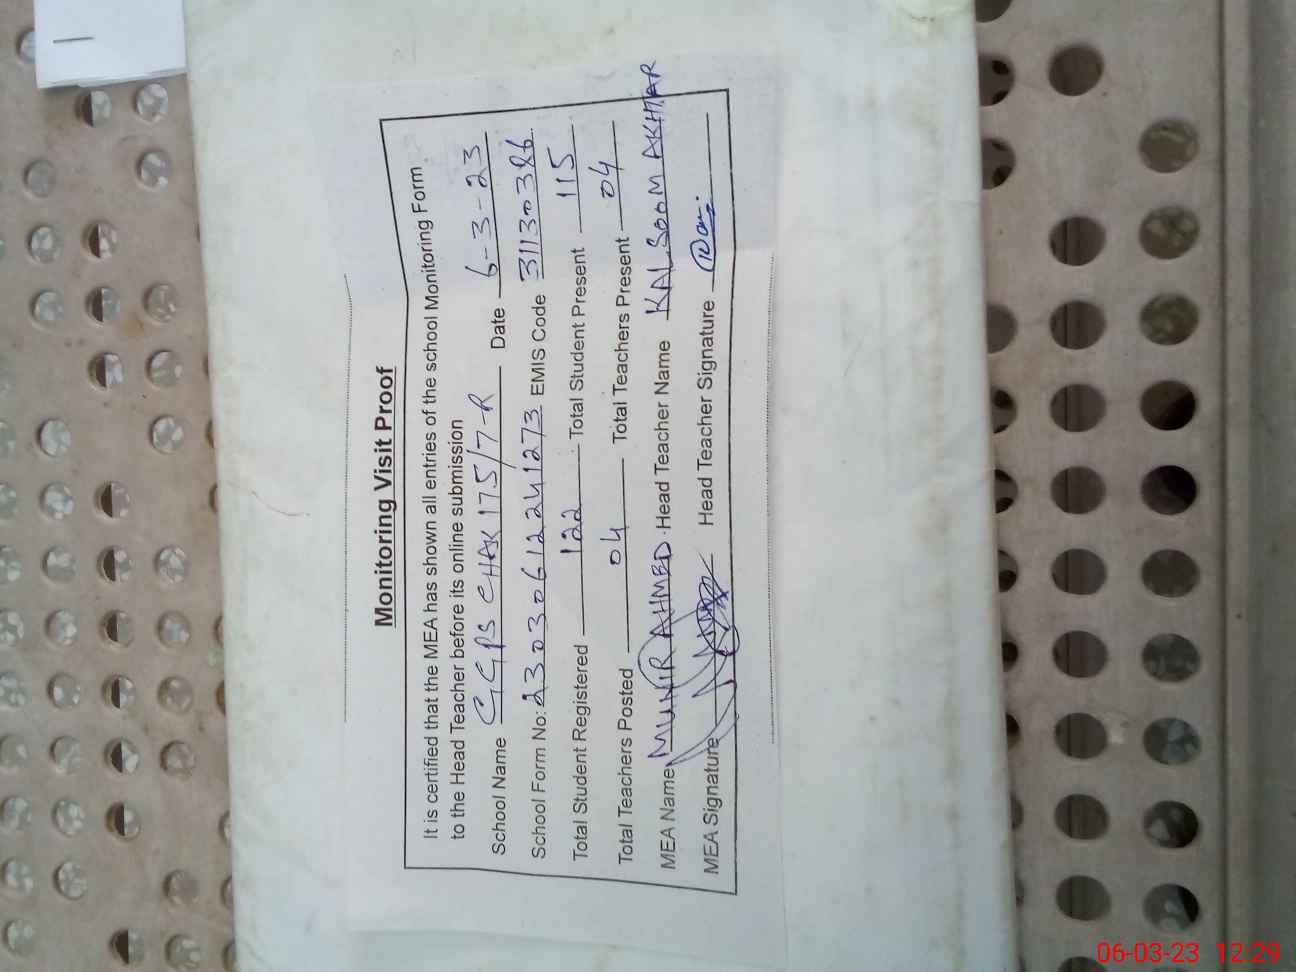 Monitoring Visit Proof
It is certified that the MEA has shown all entries of the school Monitoring Form
to the Head Teacher before its online submission
School Name GGPS CHAK 175/7-R Date 6-3-23
School Form No: 2303061224 1273 EMIS Code 31130386
Total Student Registered 122 Total Student Present 115
Total Teachers Posted 04 Total Teachers Present 04
MEA Name MUNIR AHMED Head Teacher Name KALSOOM AKHTAR
MEA Signature Head Teacher Signature
06-03-23 12:29